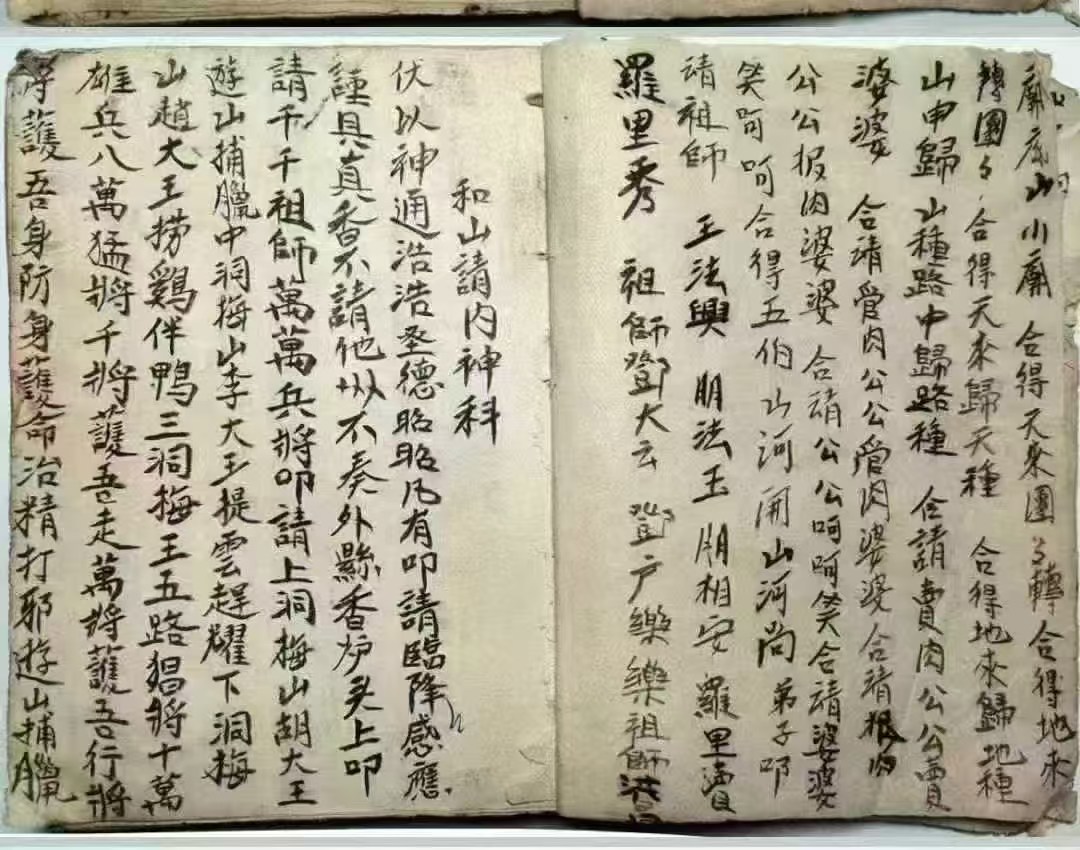 廟庒山小廟 合得天來團々轉合得地來
轉團々合得天來歸天種 合得地來歸地種
山申歸山種路中歸路種 仺請賣肉公公賣
婆婆 合請管肉公公管肉婆婆合請报肉
公公报肉婆婆 合請公公呵呵笑合請婆婆
笑呵呵合得五伯山河開山河尚 弟子叩
請祖師 王法興 朋法玉 朋相安 羅里賣
羅里秀 祖師鄧大云 鄧户樂樂祖師
和山請内神科
伏以神通浩浩圣德昭昭凡有叩請臨降感應
謹具真香不請他州不奏外縣香炉头上叩
請千千祖師萬萬兵將叩請上洞梅山胡大王
遊山捕臘中洞梅山李大王提雲趕耀下洞梅
山趙大王捞鷄伴鴨三洞梅王五路猖將十萬
雄兵八萬猛將千將護吾走萬將護吾行將
護吾身防身護命治精打邪遊山捕臘